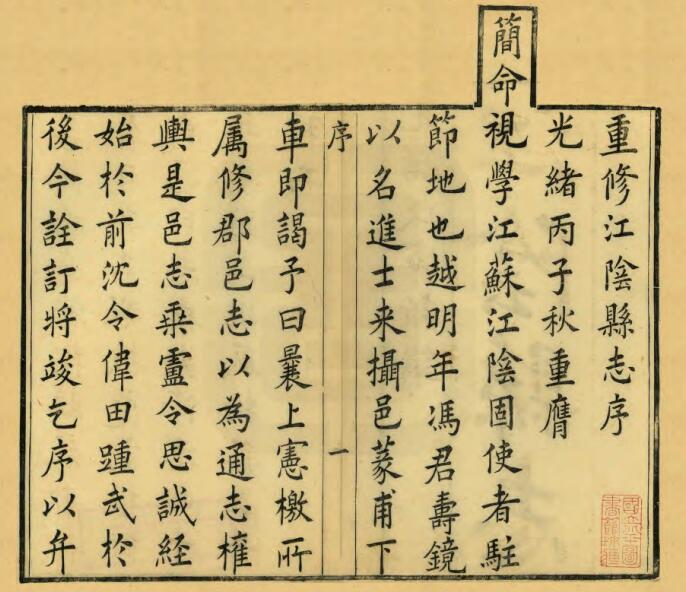 重修江陰縣志序
光緒丙子秋重膺
簡命視學江蘇江陰固使者駐
節地也越明年馮君壽鏡
以名進士来攝邑篆甫下
序
一
車即謁予曰曩上憲檄所
属修郡邑志以為通志權
輿是邑志乗盧令思誠經
始於前沈令偉田踵武於
後今詮訂將竣乞序以弁